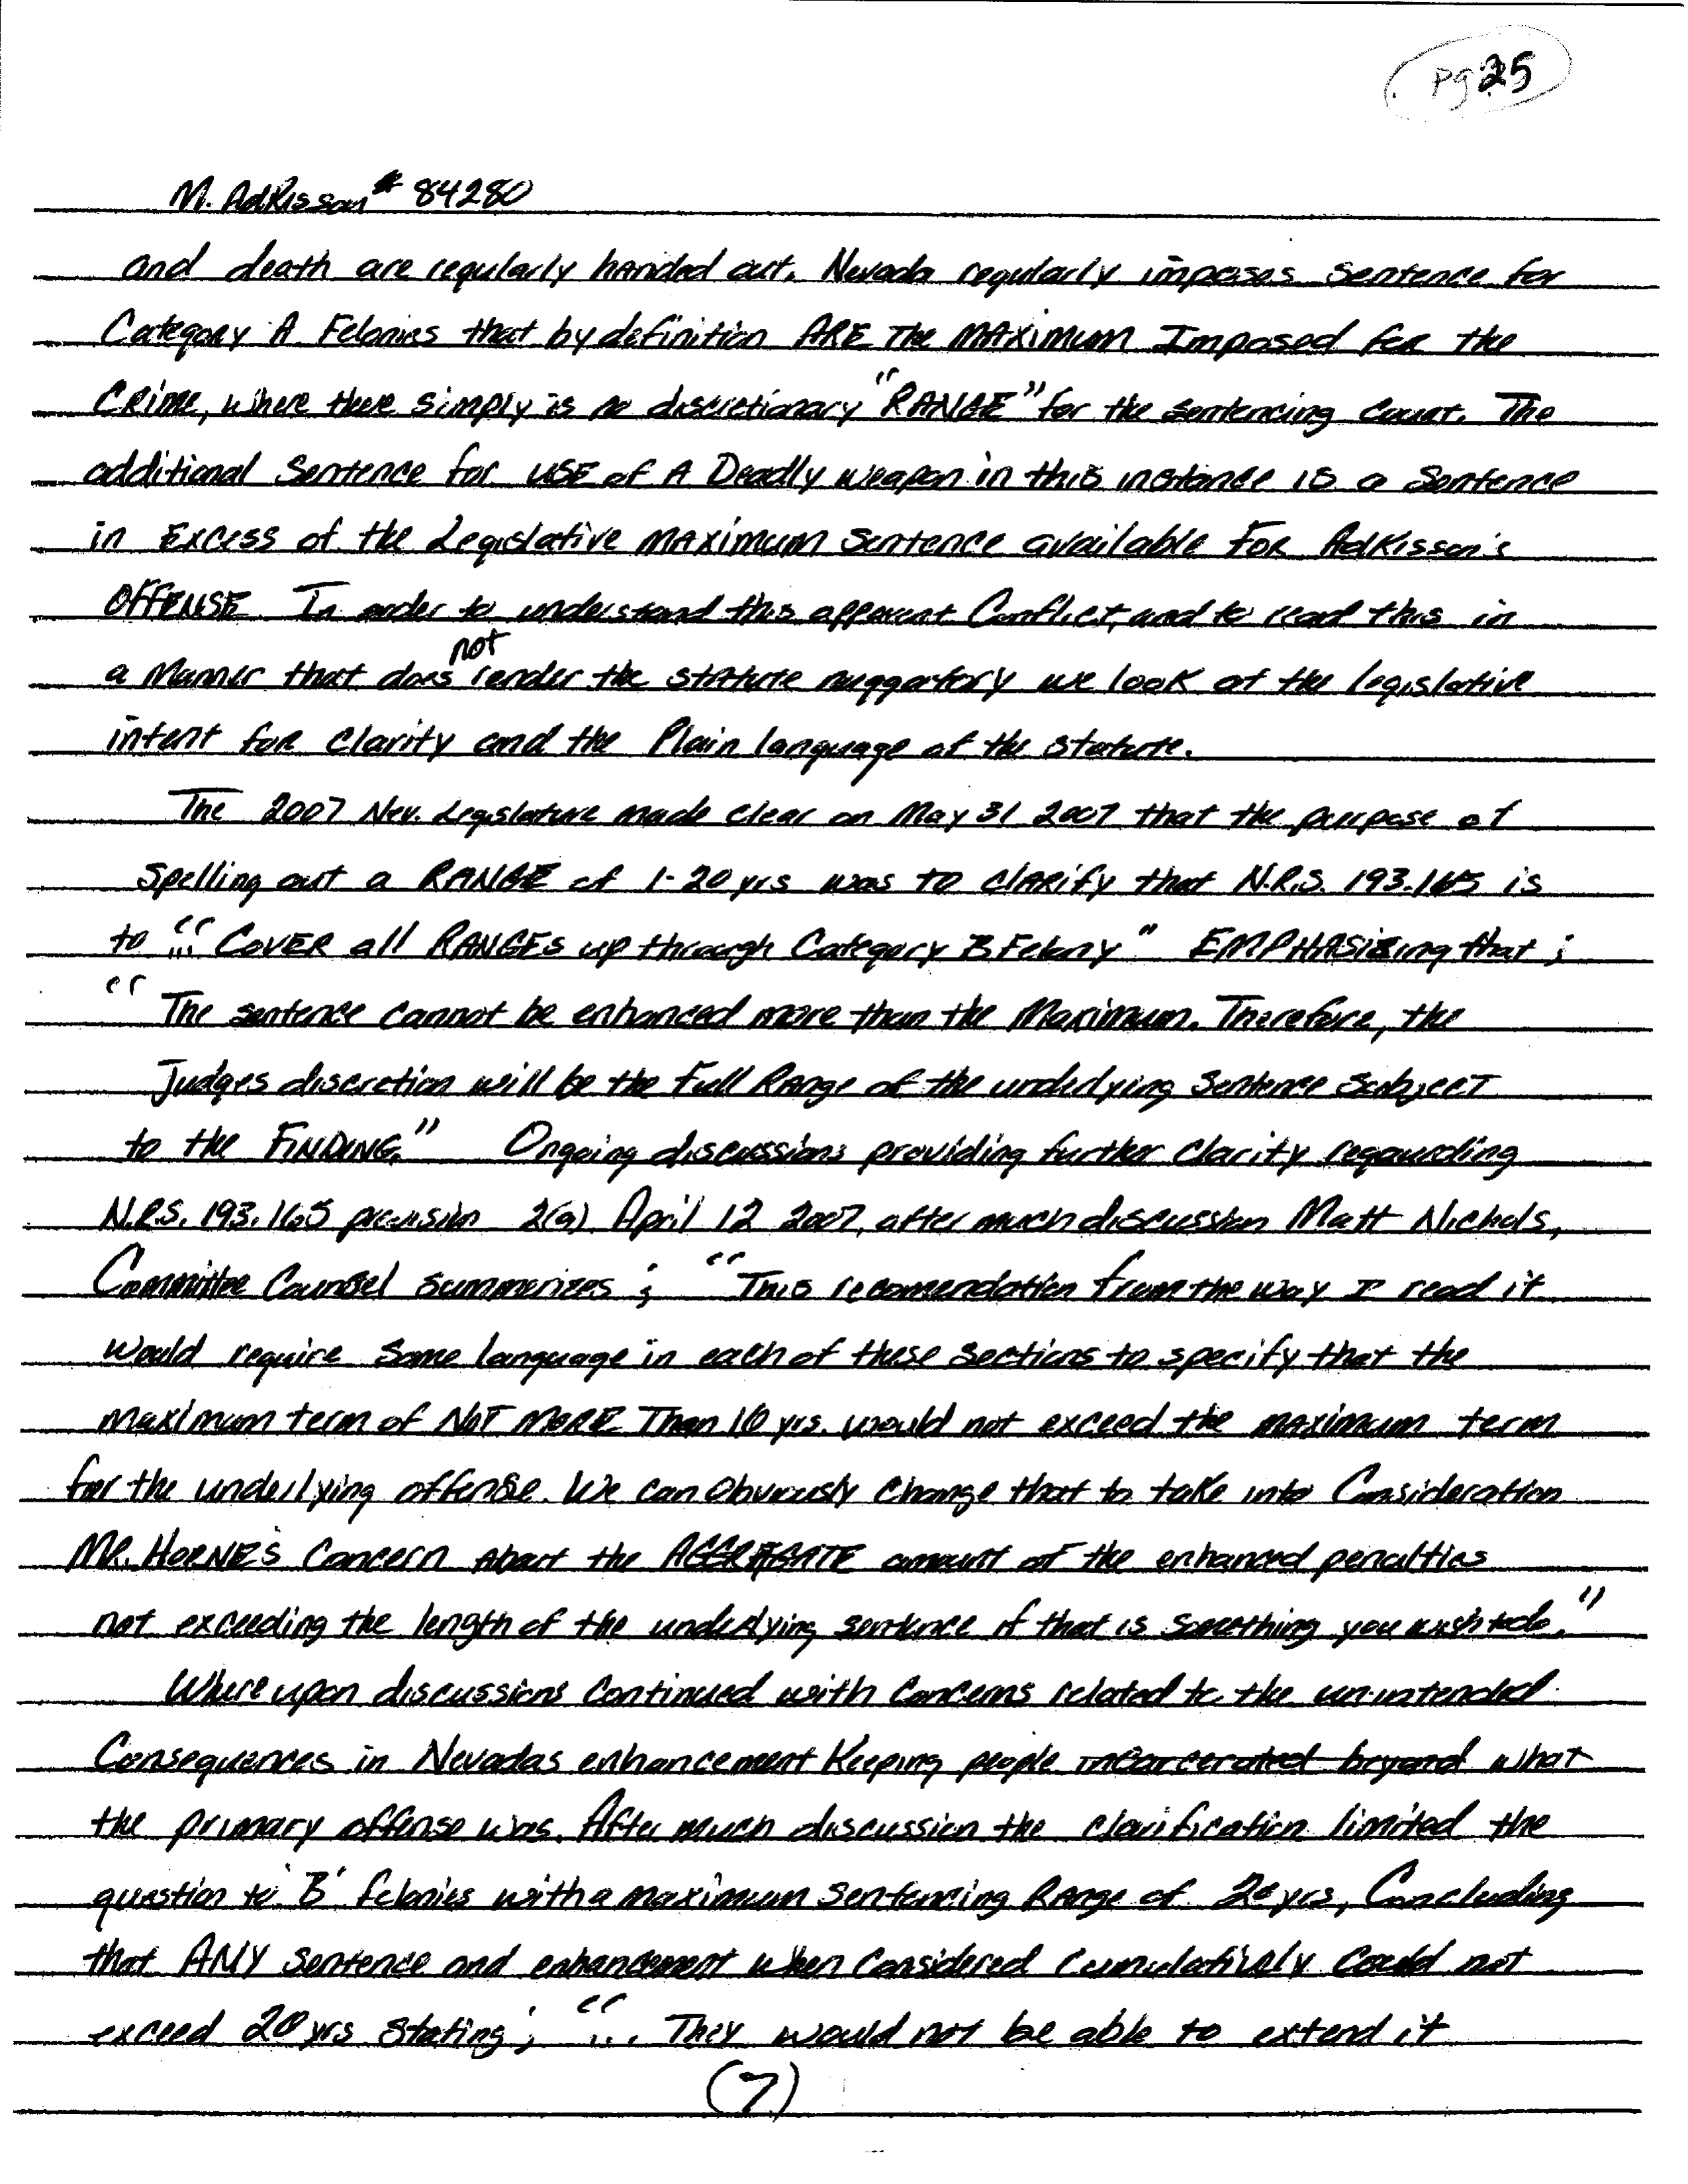 pg 25
M. Adkisson # 84280
and death are regularly handed out. Nevada regularly imposes sentence for
Category A Felonies that by definition ARE The MAXIMUM Imposed for the
Crime, where there simply is no discretionary "RANGE" for the sentencing Court. The
additional Sentence for USE of A Deadly weapon in this instance is a Sentence
in Excess of the Legislative MAXIMUM Sentence available FOR Adkisson's
OFFENSE. In order to understand this apparent Conflict, and to read this in
a Manner that does not render the statute nuggatory we look at the legislative
intent for clarity and the Plain language of the statute.
The 2007 Nev. Legislature made clear on May 31 2007 that the purpose of
Spelling out a RANGE of 1-20 yrs was to CLARify that N.R.S. 193.165 is
to "... COVER all RANGES up through Category B Felony" EMPHASIZing that ;
"The sentence cannot be enhanced more than the Maximum. Therefore, the
Judges discretion will be the Full Range of the underlying Sentence Subject
to the FINDING." Ongoing discussions providing further Clarity regaurding
N.R.S. 193.165 provision 2(a) April 12 2007, after much discussion Matt Nichols,
Committee Counsel summerizes ; "This recomendation from the way I read it
would require some language in each of these sections to specify that the
maximum term of NOT MORE Than 10 yrs. would not exceed the maximum term
for the underlying offense. We can Obviously change that to take into Consideration
MR. HORNE'S Concern About the AGGREGATE amount of the enhanced penalties
not exceeding the length of the underlying sentence if that is something you wish to do."
Where upon discussions Continued with Concerns related to the un-intended
Consequences in Nevadas enhancement Keeping people incarcerated beyond what
the primary offense was. After much discussion the clarification limited the
question to 'B' felonies with a maximum Sentencing Range of 20 yrs, Concluding
that ANY Sentence and enhancement when Considered Cumulatively Could not
exceed 20 yrs Stating ; "... They would not be able to extend it
(7)